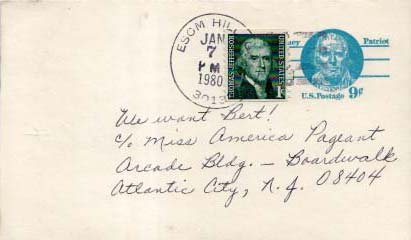 ESOM HILL
JAN
7
PM
1980
3013
THOMAS JEFFERSON
UNITED STATES
1¢
Patriot
U.S. Postage 9¢
We want Bert!
c/o Miss America Pageant
Arcade Bldg. – Boardwalk
Atlantic City, N.J. 08404